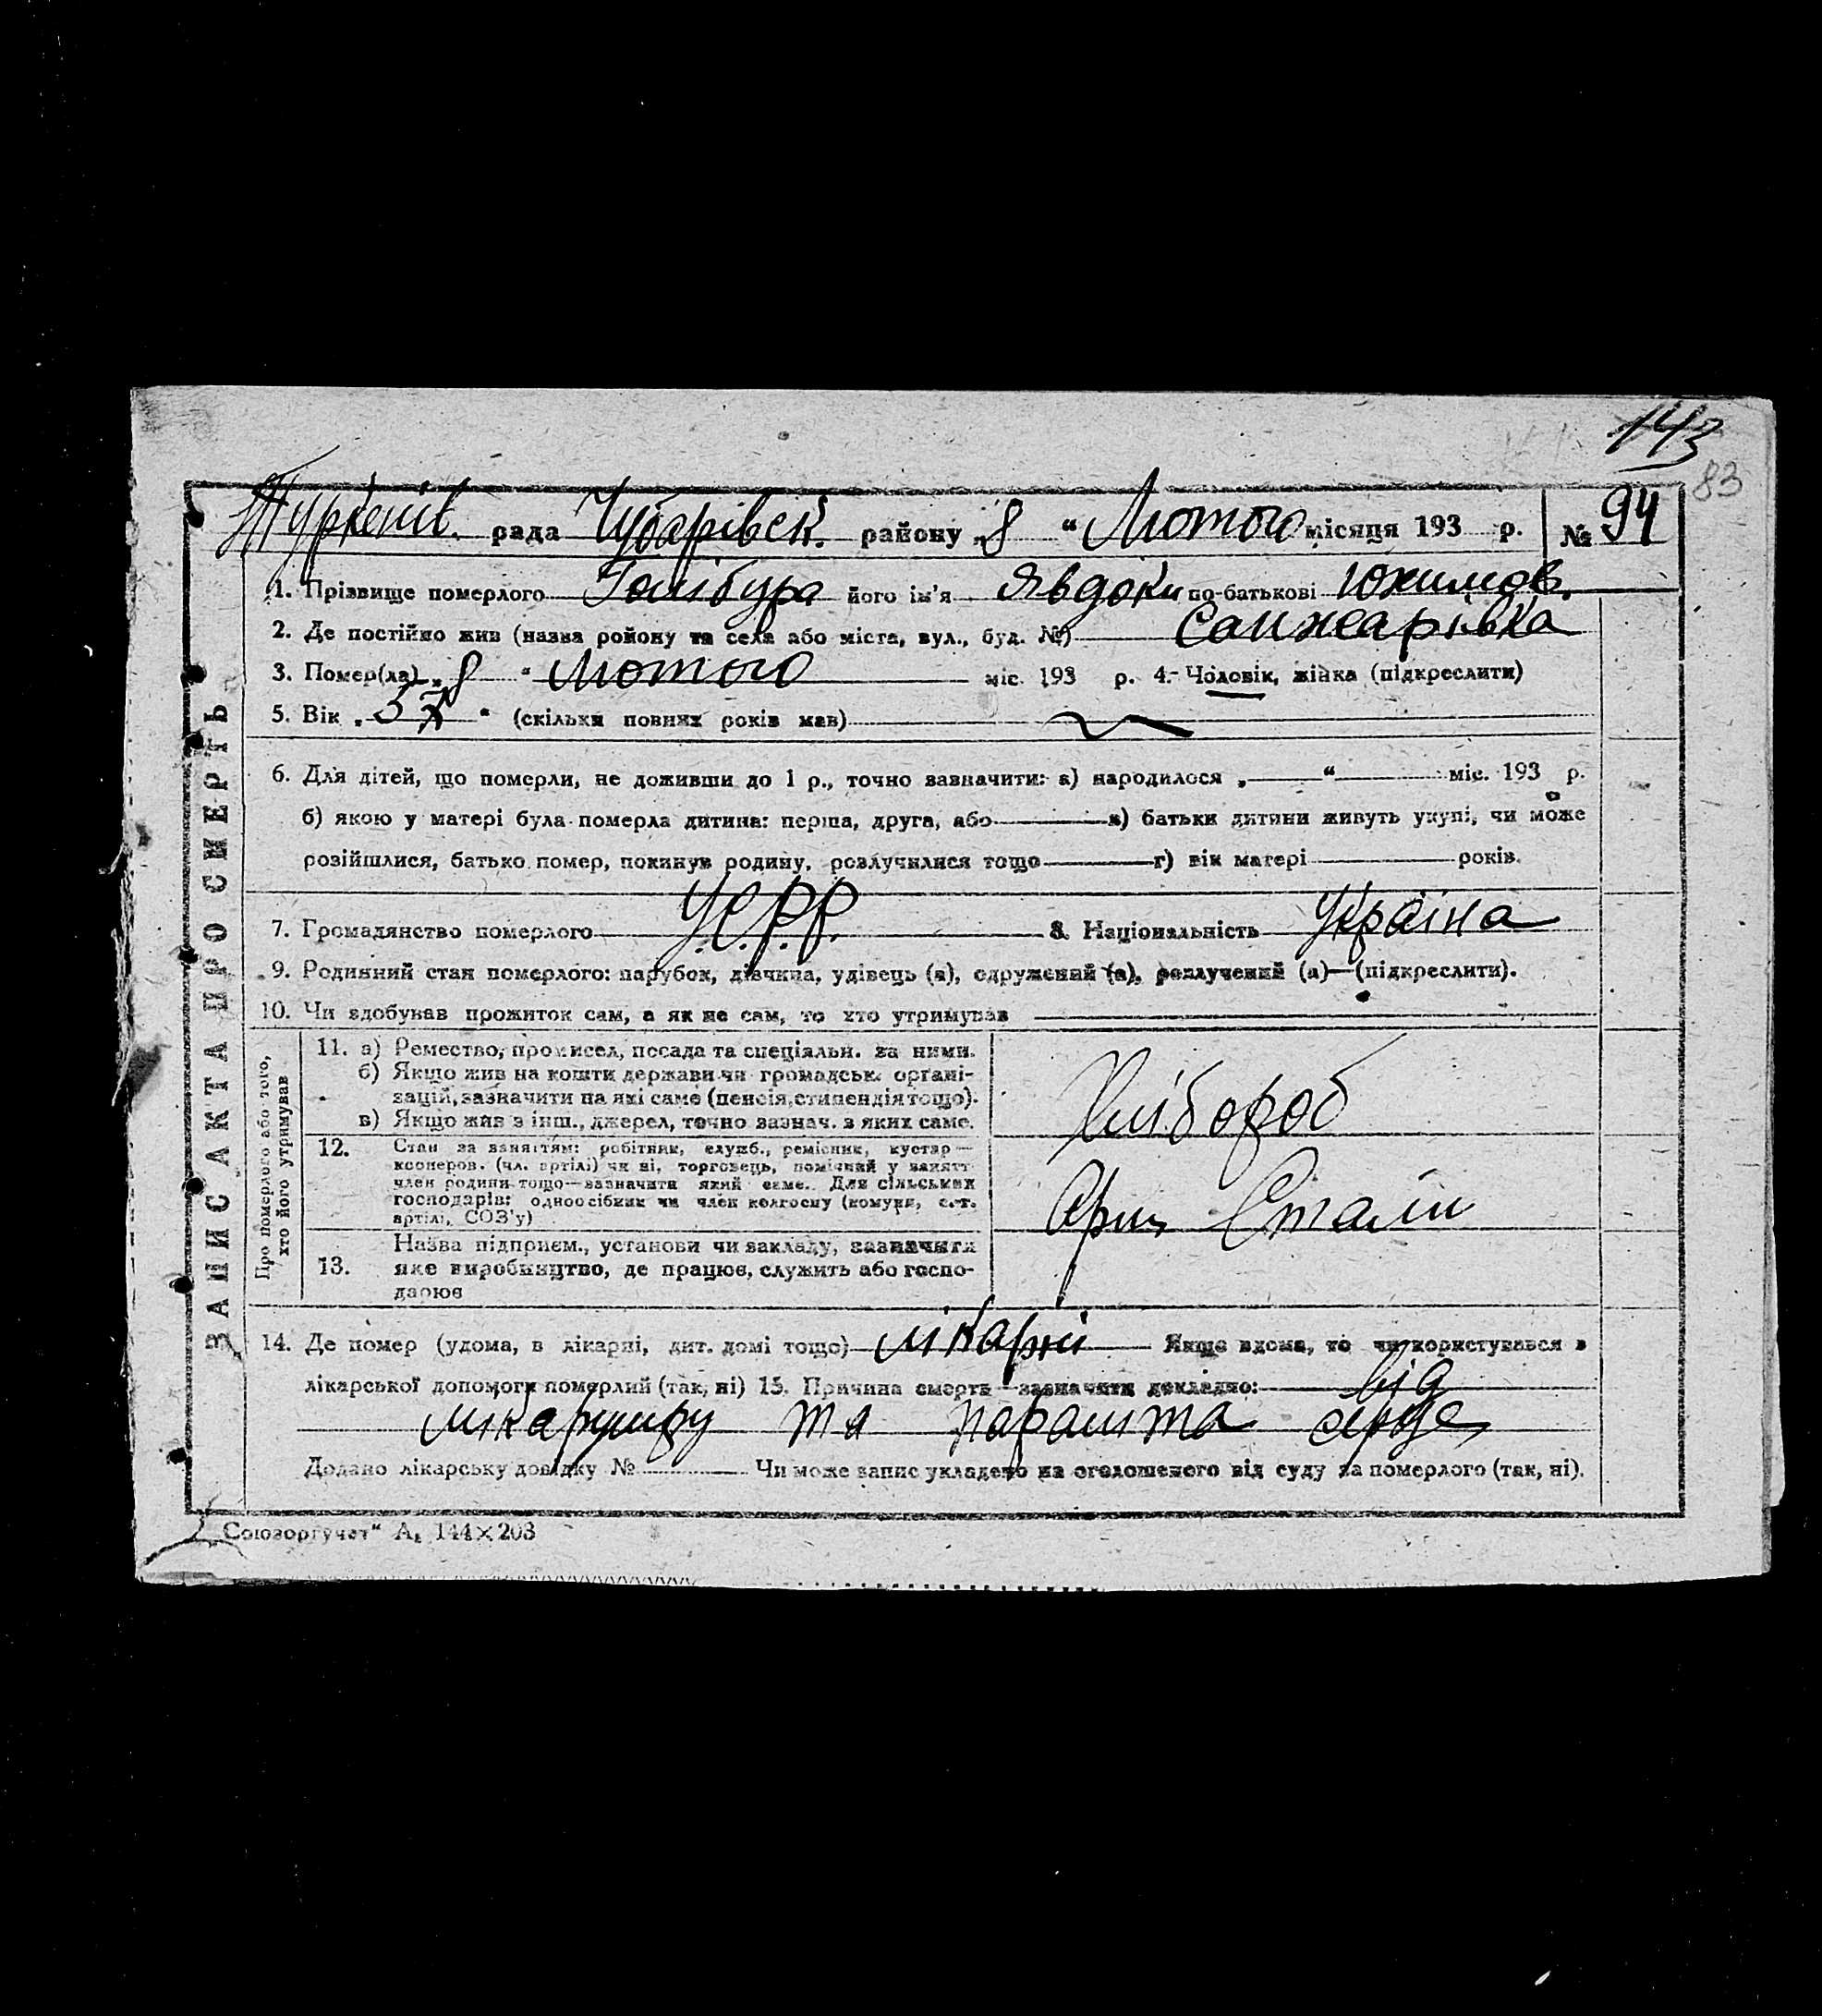 143
83
Туркенів. рада Чубарівськ. району „8 “ Лютого місяця 193 р. № 94
1. Прізвище померлого Голібура його ім'я Явдоки по-батькові Юхимов.
2. Де постійно жив (назва ройону та села або міста, вул., буд. №) Санжарівка
3. Помер(ла) „8 “ Лютого міс. 193 р. 4. Чоловік, жінка (підкреслити)
5. Вік „ “ (скільки повних років мав)
6. Для дітей, що померли, не доживши до 1 р., точно зазначити: а) народилося „ “ міс. 193 р.
б) якою у матері була померла дитина: перша, друга, або в) батьки дитини живуть укупі, чи може
розійшлися, батько помер, покинув родину, розлучилися тощо г) вік матері років.
7. Громадянство померлого У.С.Р.Р. 8. Національність Україна
9. Родинний стан померлого: парубок, дівчина, удівець (а), одружений (а), розлучений (а)—(підкреслити).
10. Чи здобував прожиток сам, а як не сам, то хто утримував
ЗАПИС АКТА ПРО СМЕРТЬ
Про померлого або того,
хто його утримував
11. а) Ремество, промисел, посада та спеціяльн. за ними.
б) Якщо жив на кошти держави чи громадськ. органі-
зацій, зазначити на які саме (пенсія, стипендія тощо).
в) Якщо жив з інш., джерел, точно зазнач. з яких саме.
Хлібороб
12. Стан за заняттям: робітник, служб., ремісник, кустар—
кооперов. (чл. артілі) чи ні, торговець, помічний у занятт
член родини тощо—зазначити який саме. Для сільських
господарів: одноосібник чи член колгоспу (комуни, с.-г.
артілі, СОЗ'у)
Сталін
13. Назва підприєм., установи чи закладу, зазначити
яке виробництво, де працює, служить або госпо-
дарює
14. Де помер (удома, в лікарні, дит. домі тощо) лікарні Якщо вдома, то чи користувався з
лікарської допомоги померлий (так, ні) 15. Причина смерти—зазначити докладно: від
та параліта серде
Додано лікарську довідку № Чи може запис укладено на оголошеного від суду за померлого (так, ні).
Союзоргучет“ А₅ 144×203